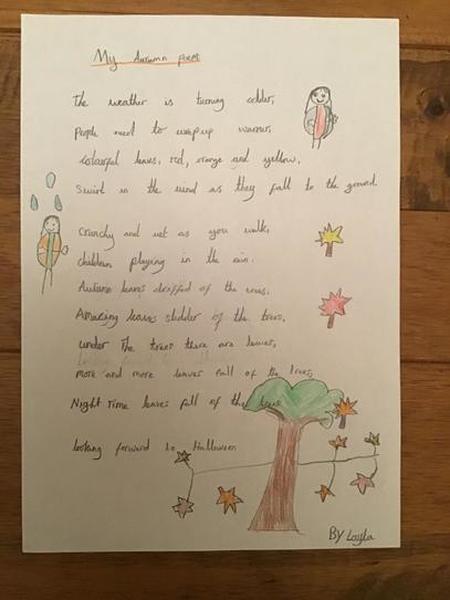 My Autumn poem
The weather is turning colder,
People need to wrap up warmer,
colourful leaves, red, orange and yellow,
Swirl in the wind as they fall to the ground.
Crunchy and wet as you walk,
children playing in the rain.
Autumn leaves dropped of the trees,
Amazing leaves slidder of the trees,
under The trees there are leaves,
more and more leaves fall of the trees,
Night Time leaves fall of the trees
looking forward to Halloween
By Layla